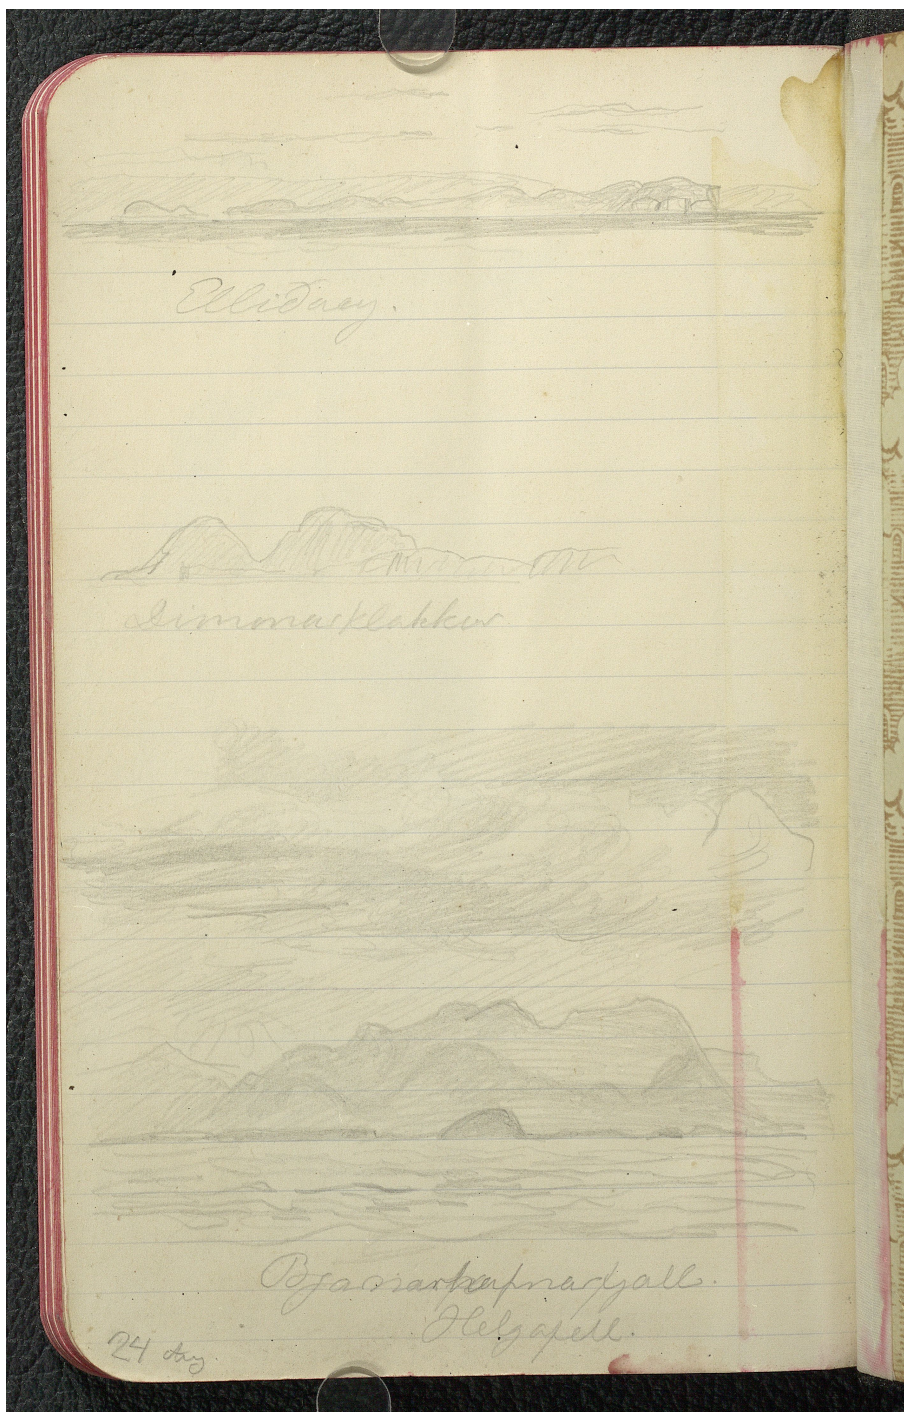 Elliðaey.
Dimonarklakkar
Bjarnarhafnarfjall.
Helgafell.
24 Aug